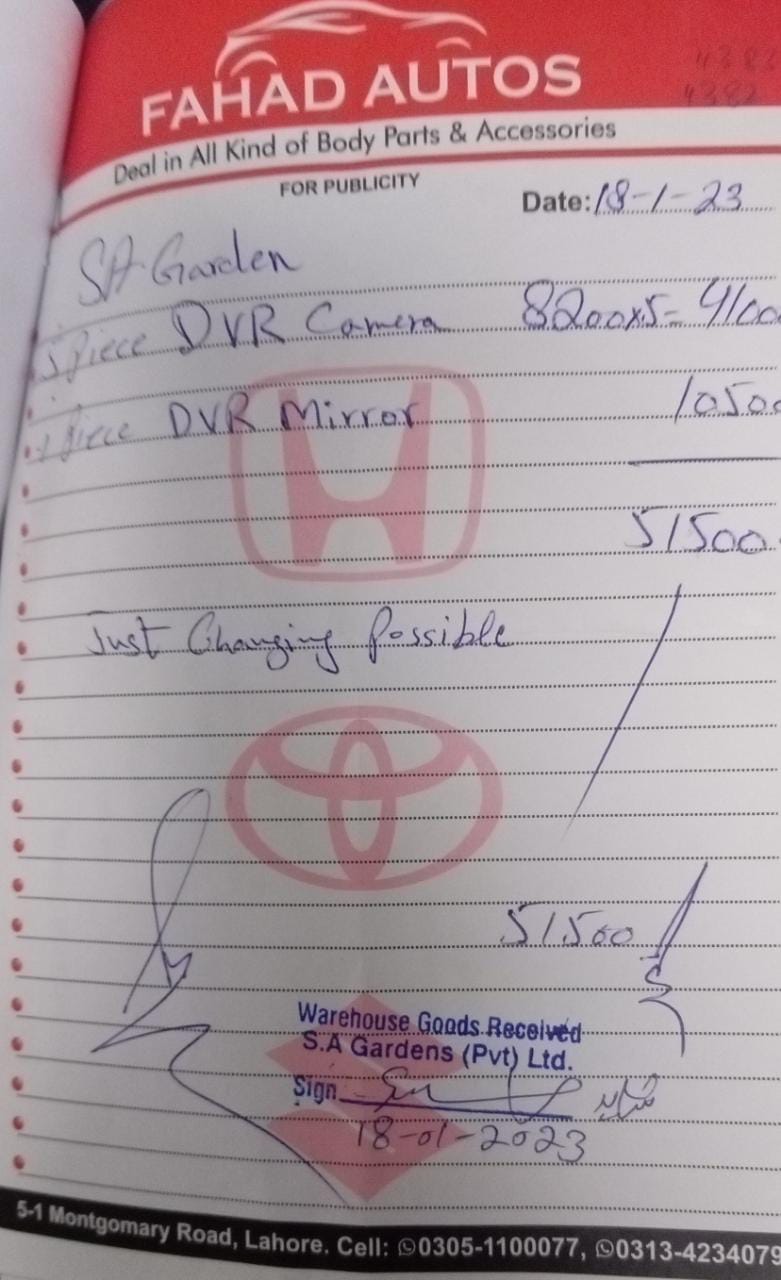 FAHAD AUTOS
Deal in All Kind of Body Parts & Accessories
FOR PUBLICITY
Date: 18-1-23
SA Garden
5 Piece DVR Camera 8200x5= 4100
1 Piece DVR Mirror 10500
51500
Just Changing Possible
51500
Warehouse Goods Received
S.A Gardens (Pvt) Ltd.
Sign
18-01-2023
5-1 Montgomary Road, Lahore. Cell: 0305-1100077, 0313-4234079